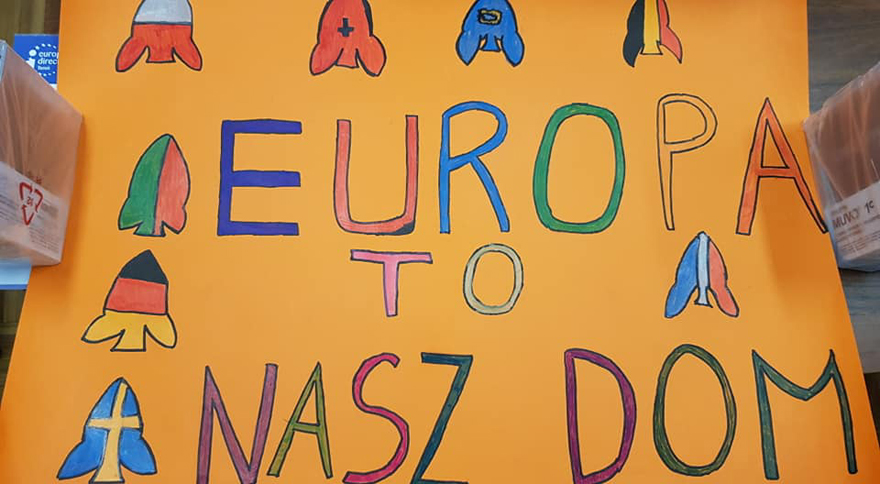 EUROPA
TO
NASZ DOM
europ
direc
MUVO